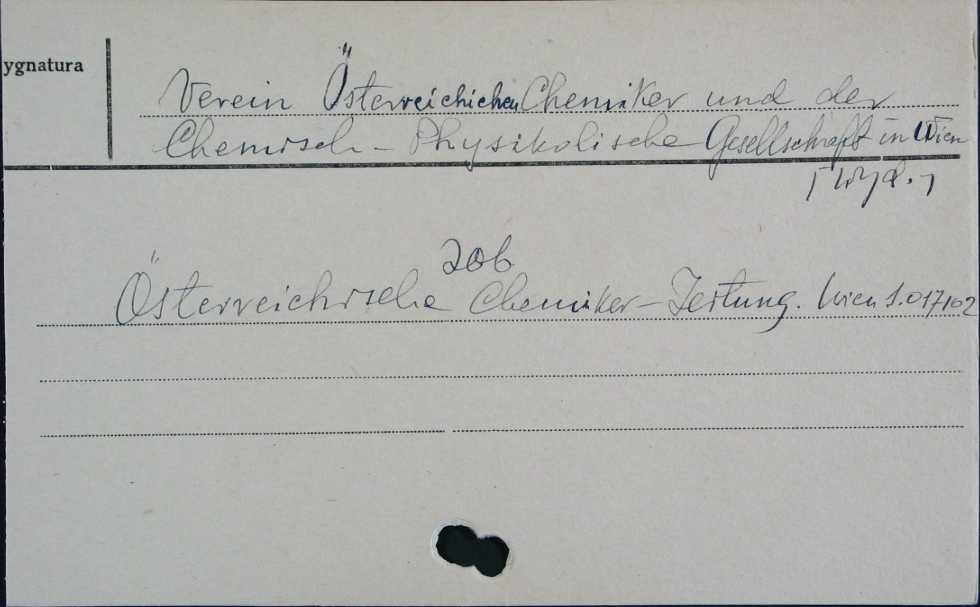 ygnatura
Verein Österreichichen Chemiker und der
Chemisch-Physikolische Gesellschaft in Wien
[wyd.]
zob
Österreichische Chemiker-Zeitung. Wien S.017102